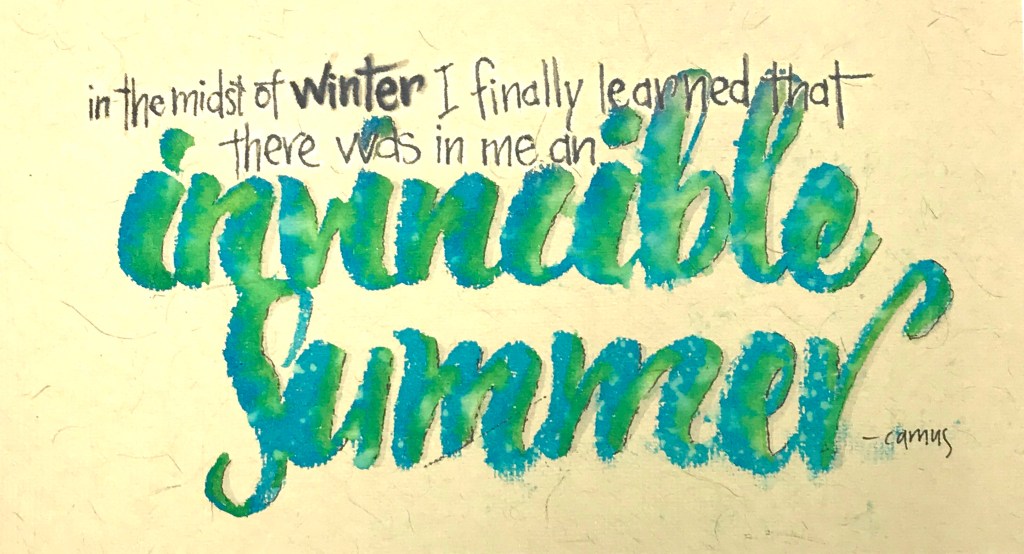 in the midst of winter I finally learned that
there was in me an
invincible
summer
- camus